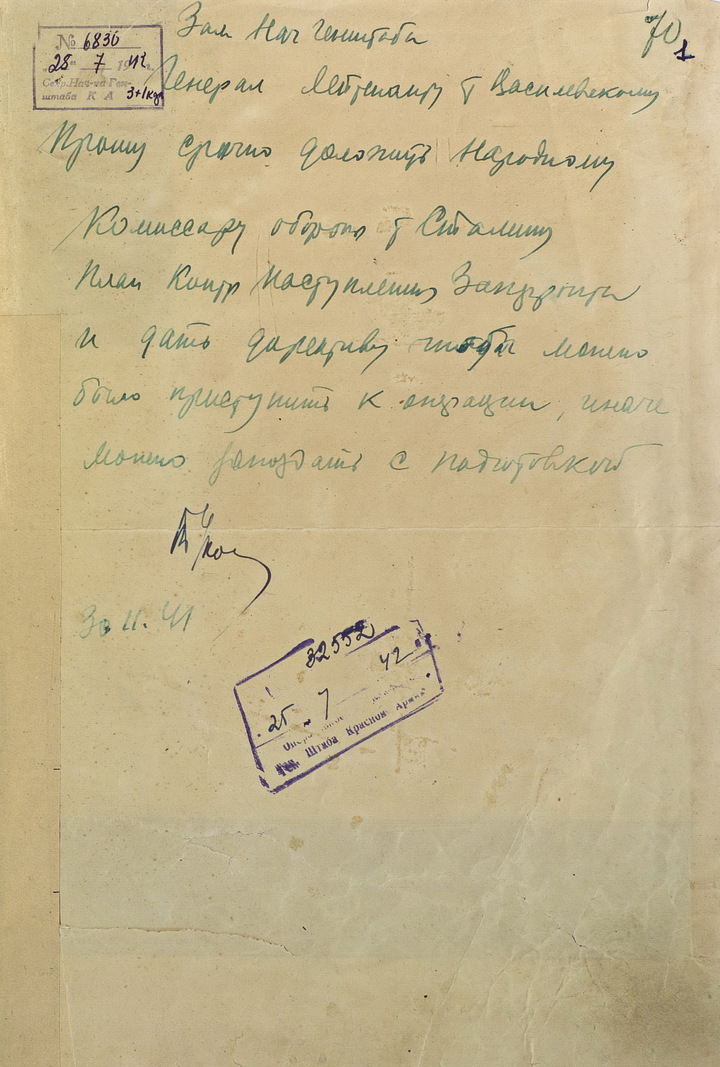 Зам Нач Генштаба
70
1
№ 6836
28 7 1942 г.
Секр. Нач-ка Ген-
штаба К А 3+1кар
Генерал Лейтенанту т Василевскому
Прошу срочно доложить Народному
Комиссару обороны т Сталину
План Контр Наступления Запфронта
и дать директиву чтобы можно
было приступить к операции, иначе
можно запоздать с подготовкой
Жуков
30 11. 41
32552
25 7 42
Ген. Штаба Красной Армии